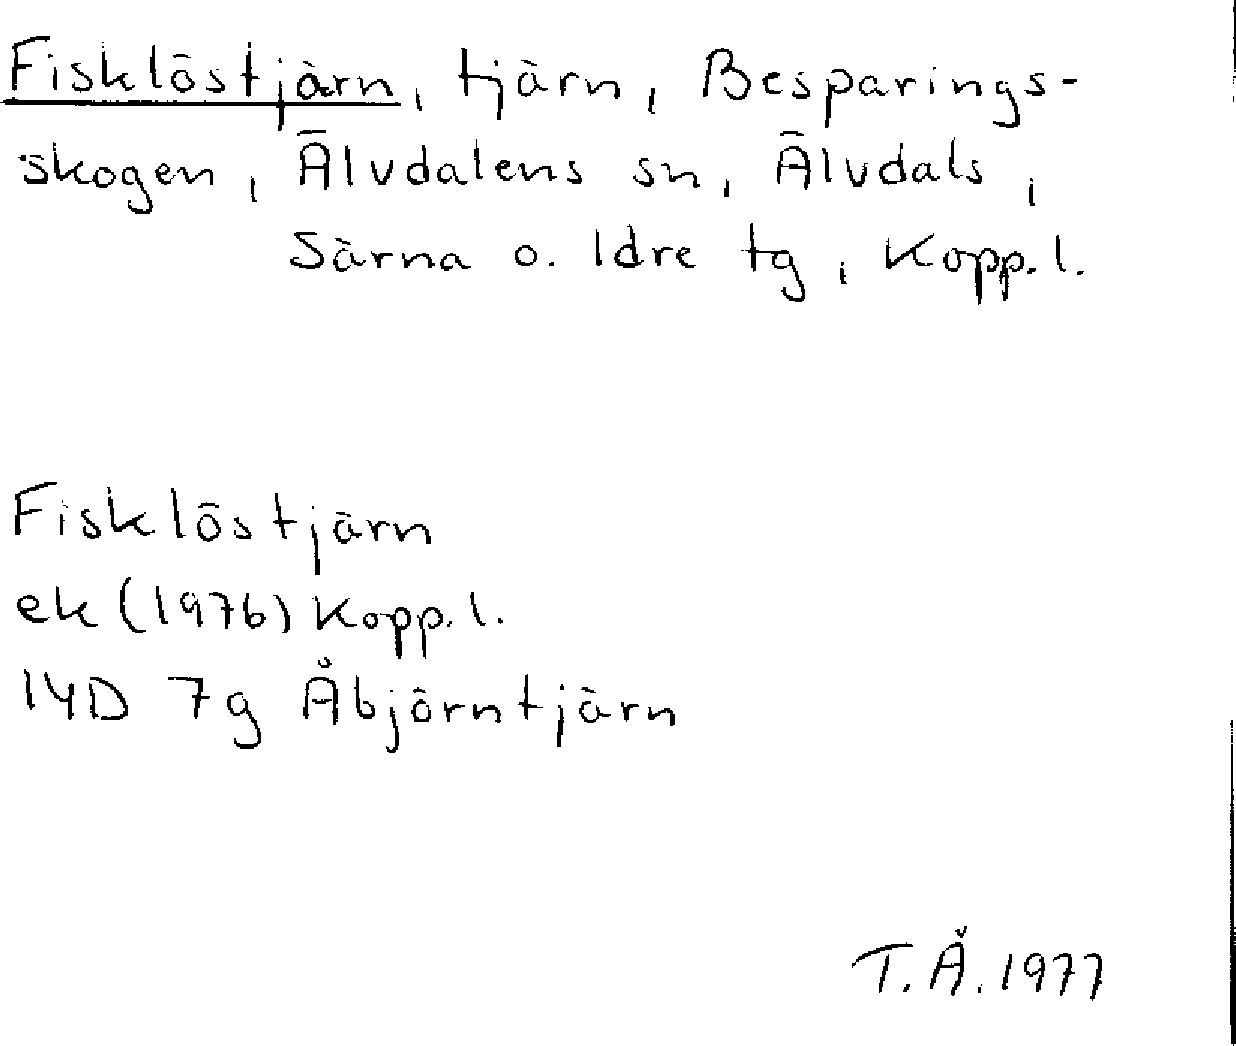 Fisklöstjärn, tjärn, Besparings-
skogen, Älvdalens sn, Älvdals,
Särna o. Idre tg, Kopp. l.
Fisklöstjärn
ek (1976) Kopp. l.
14D 7g Åbjörntjärn
T. Å. 1977